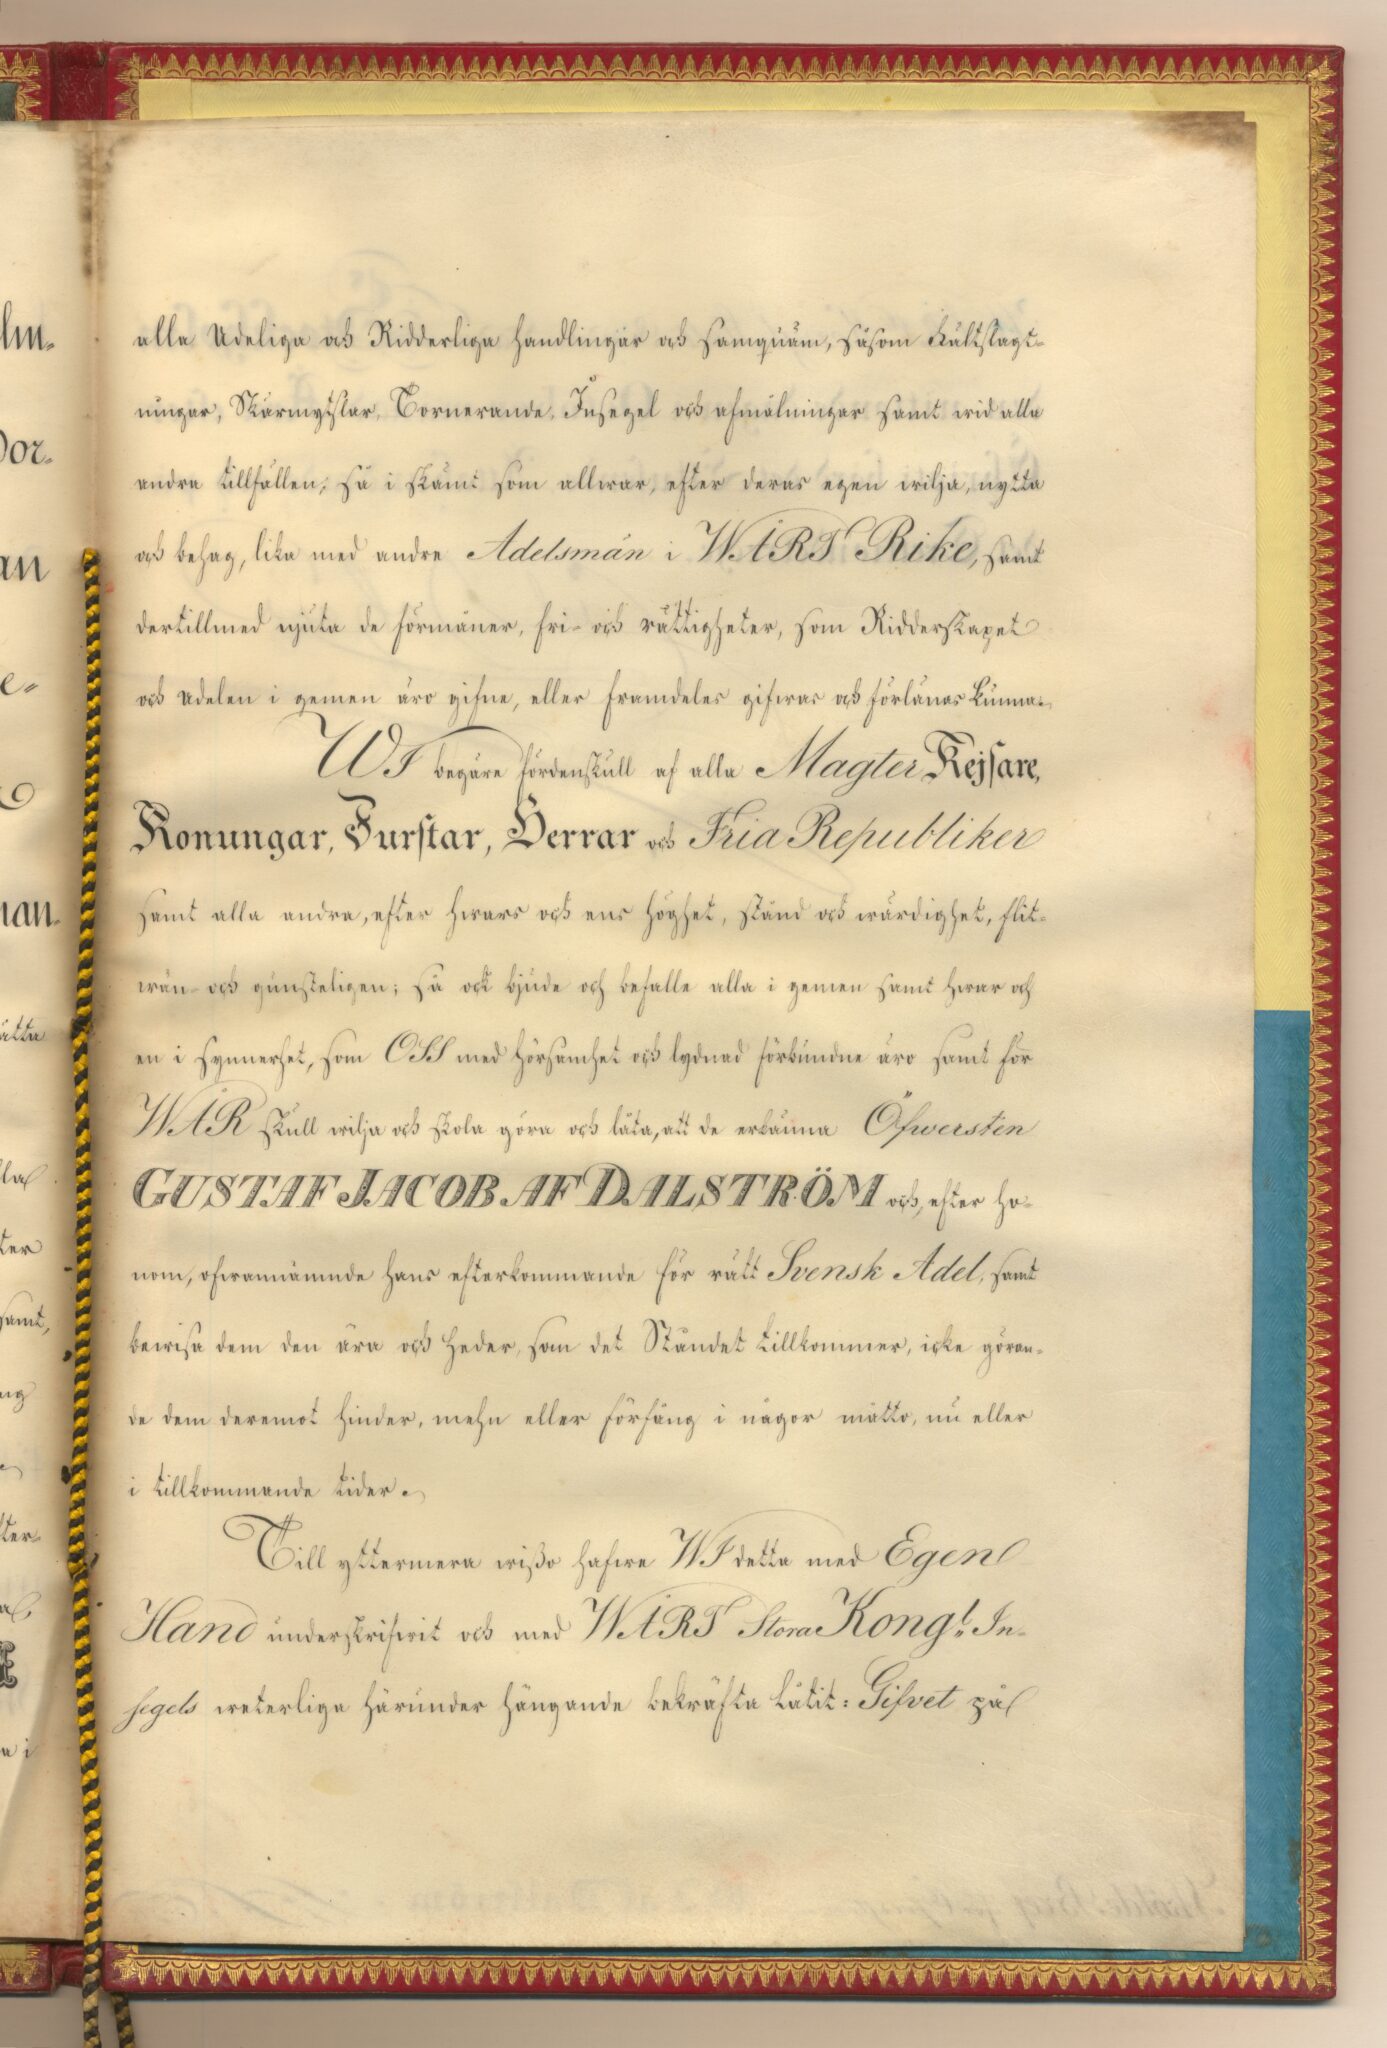 alla Adeliga och Ridderliga handlingar och samqväm, såsom Fältslagt-
ningar, Skärmytslar, Tornerande, Insegel och afmålningar samt wid alla
andra tillfällen, så i skämt som allwar, efter deras egen wilja, nytta
och behag, lika med andre Adelsmän i WÅRT Rike, samt
dertillmed njuta de förmåner, fri- och rättigheter, som Ridderskapet
och Adelen i gemen äro gifne, eller framdeles gifwas och förlänas kunna.
WI begäre fördenskull af alla Magter Kejsare,
Konungar, Furstar, Herrar och Fria Republiker
samt alla andra, efter hwars och ens höghet, stånd och wärdighet, flit-
wän- och gunsteligen; så ock bjude och befalle alla i gemen samt hwar och
en i synnerhet, som OSS med hörsamhet och lydnad förbundne äro samt för
WÅR skull wilja och skola göra och låta, att de erkänna Öfwersten
GUSTAF JACOB AF DALSTRÖM och, efter ho-
nom, ofwannämnde hans efterkommande för rätt Svensk Adel, samt
bewisa dem den ära och heder, som det Ståndet tillkommer, icke göran-
de dem deremot hinder, mehn eller förfång i någor måtto, nu eller
i tillkommande tider.
Till yttermera wißo hafwe WI detta med Egen
Hand underskrifwit och med WÅRT Stora Kongl. In-
segels weterliga härunder hängande bekräfta Låtit: Gifvet på